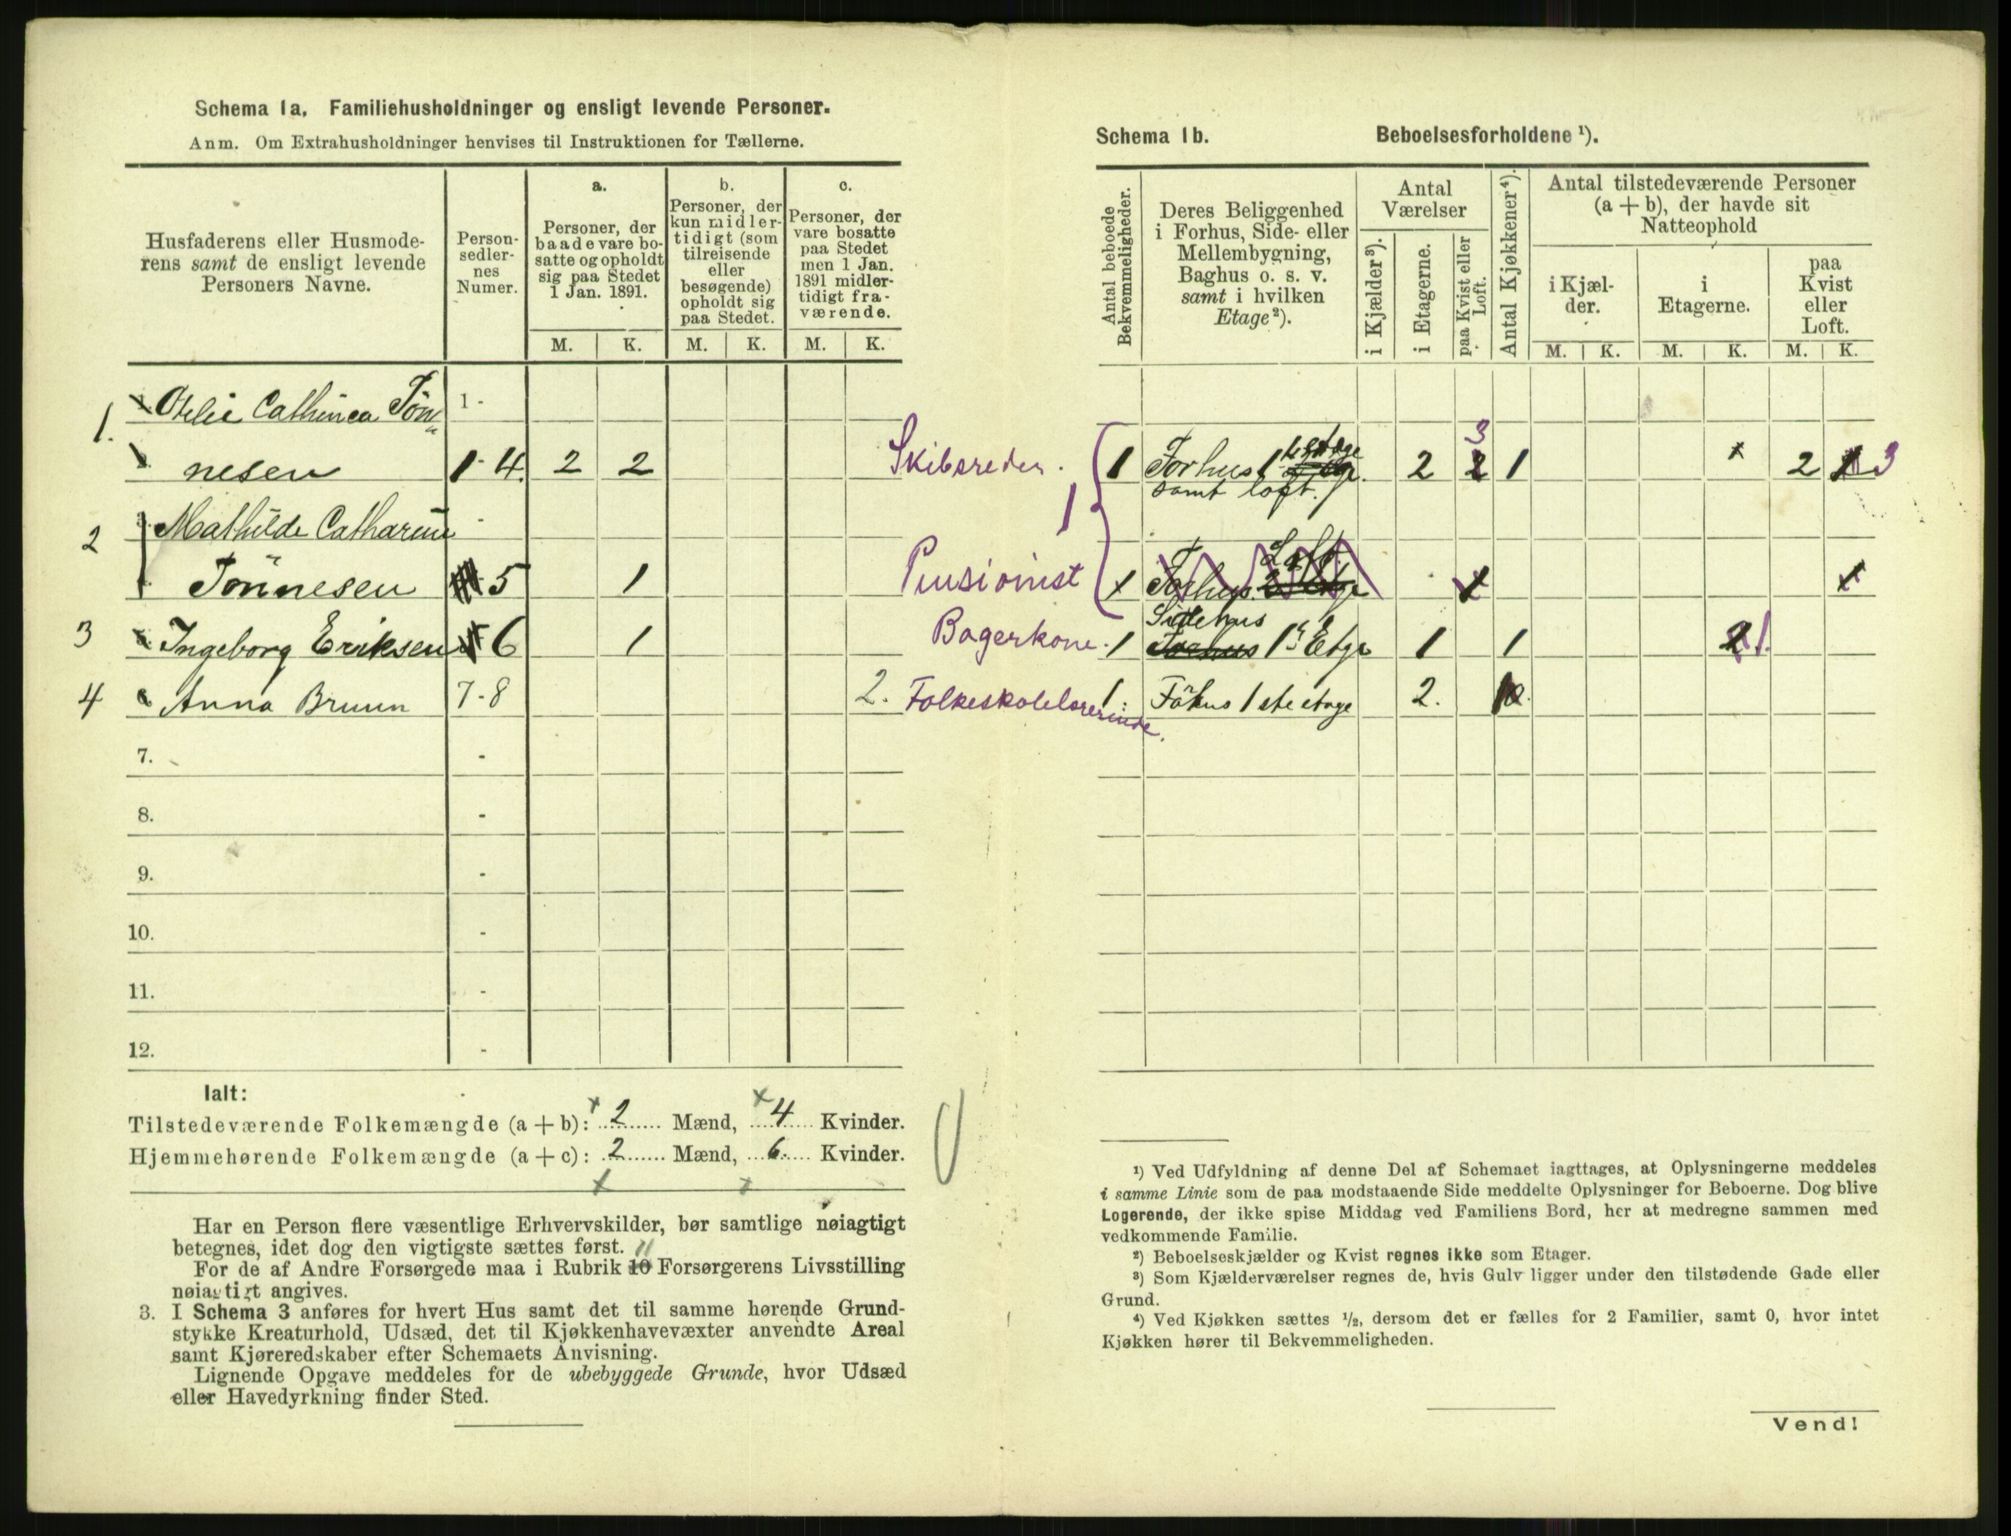 Schema 1a. Familiehusholdninger og ensligt levende Personer.
Anm. Om Extrahusholdninger henvises til Instruktionen for Tællerne.
Husfaderens eller Husmode-
rens samt de ensligt levende
Personers Navne.
Person-
sedler-
nes
Numer.
a.
Personer, der
baade vare bo-
satte og opholdt
sig paa Stedet
1 Jan. 1891.
b.
Personer, der
kun midler-
tidigt (som
tilreisende
eller
besøgende)
opholdt sig
paa Stedet.
c.
Personer, der
vare bosatte
paa Stedet
men 1 Jan.
1891 midler-
tidigt fra-
værende.
M. K. M. K. M. K.
1. Otelie Cathinca Tön- 1 -
nesen 1-4. 2 2
2 Mathilde Catharine -
Tönnesen 5 1
3 Ingeborg Eriksen 6 1
4 Anna Bruun 7-8 2.
7. -
8. -
9. -
10. -
11. -
12. -
Ialt:
Tilstedeværende Folkemængde (a + b): 2 Mænd, 4 Kvinder.
Hjemmehørende Folkemængde (a + c): 2 Mænd, 6. Kvinder.
Har en Person flere væsentlige Erhvervskilder, bør samtlige nøiagtigt
betegnes, idet dog den vigtigste sættes først. 11
For de af Andre Forsørgede maa i Rubrik 10 Forsørgerens Livsstilling
nøiagtigt angives.
3. I Schema 3 anføres for hvert Hus samt det til samme hørende Grund-
stykke Kreaturhold, Udsæd, det til Kjøkkenhavevæxter anvendte Areal
samt Kjøreredskaber efter Schemaets Anvisning.
Lignende Opgave meddeles for de ubebyggede Grunde, hvor Udsæd
eller Havedyrkning finder Sted.
Schema 1b. Beboelsesforholdene ¹).
Antal beboede
Bekvemmeligheder.
Deres Beliggenhed
i Forhus, Side- eller
Mellembygning,
Baghus o. s. v.
samt i hvilken
Etage²).
Antal
Værelser
i Kjælder³).
i Etagerne.
paa Kvist eller
Loft.
Antal Kjøkkener⁴).
Antal tilstedeværende Personer
(a + b), der havde sit
Natteophold
i Kjæl-
der.
i
Etagerne.
paa
Kvist
eller
Loft.
M. K. M. K. M. K.
3
Skibsreder. 1 Forhus 1 etage 2 2 1 x 2 3
samt loft.
1
Loft
Pensionist x Forhus 2 Etage x x
Sidehus
Bagerkone. 1 Forhus 1ste Etge 1 1 2 1.
Folkeskolelærerinde. 1. Föhus 1 ste etage 2.
¹) Ved Udfyldning af denne Del af Schemaet iagttages, at Oplysningerne meddeles
i samme Linie som de paa modstaaende Side meddelte Oplysninger for Beboerne. Dog blive
Logerende, der ikke spise Middag ved Familiens Bord, her at medregne sammen med
vedkommende Familie.
²) Beboelseskjælder og Kvist regnes ikke som Etager.
³) Som Kjælderværelser regnes de, hvis Gulv ligger under den tilstødende Gade eller
Grund.
⁴) Ved Kjøkken sættes ½, dersom det er fælles for 2 Familier, samt 0, hvor intet
Kjøkken hører til Bekvemmeligheden.
Vend!